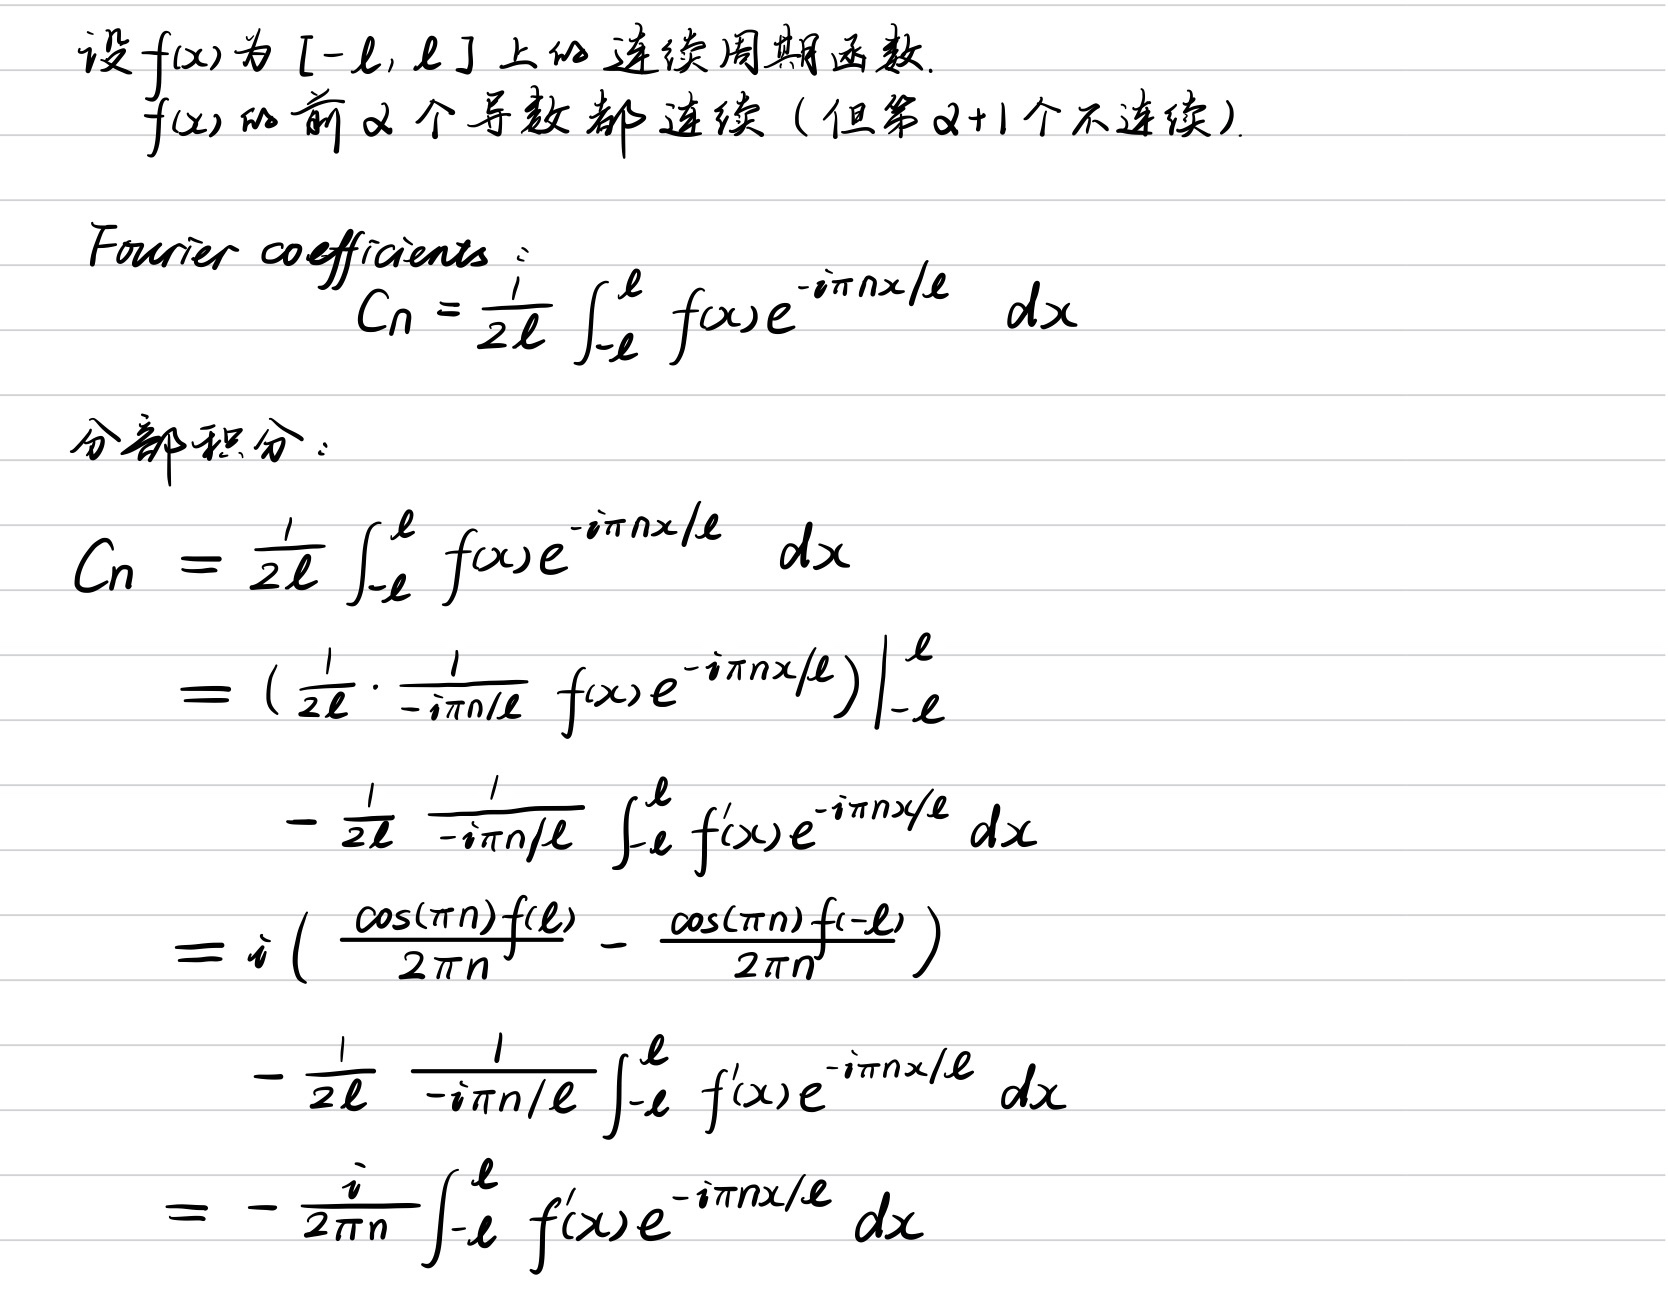 设 f(x) 为 [-ℓ, ℓ] 上的 连续周期函数.
f(x) 的前 α 个 导数都连续 (但第 α+1 个不连续).
Fourier coefficients :
Cn = 1/2ℓ ∫_{-ℓ}^{ℓ} f(x) e^{-iπnx/ℓ} dx
分部积分 :
Cn = 1/2ℓ ∫_{-ℓ}^{ℓ} f(x) e^{-iπnx/ℓ} dx
= ( 1/2ℓ · 1/(-iπn/ℓ) f(x) e^{-iπnx/ℓ} ) |_{-ℓ}^{ℓ}
- 1/2ℓ 1/(-iπn/ℓ) ∫_{-ℓ}^{ℓ} f'(x) e^{-iπnx/ℓ} dx
= i ( cos(πn) f(ℓ)/2πn - cos(πn) f(-ℓ)/2πn )
- 1/2ℓ 1/(-iπn/ℓ) ∫_{-ℓ}^{ℓ} f'(x) e^{-iπnx/ℓ} dx
= - i/2πn ∫_{-ℓ}^{ℓ} f'(x) e^{-iπnx/ℓ} dx